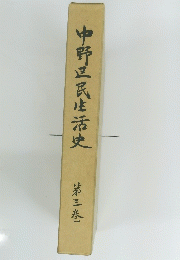 中野区民生活史
第三巻